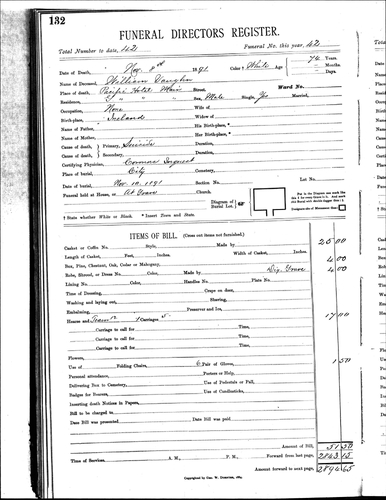 132
FUNERAL DIRECTORS REGISTER.
Total Number to date, 42 Funeral No. this year, 42
Date of Death, Nov. 8th 1891. Color † White Age 74 Years. Months. Days.
Name of Deceased, William Vaughn
Place of death, Pacific Hotel Main Street. Ward No.
Residence, " " " Sex, Male Single, Yes Married,
Occupation, None Wife of
Birth-place, Ireland Widow of
Name of Father, His Birth-place *
Name of Mother, Her Birth-place *
Cause of death, Primary, Suicide Duration,
Cause of death, Secondary, Duration,
Certifying Physician, Coroner Inquest
Place of burial, City Cemetery,
Date of burial, Nov. 10, 1891 Section No. Lot No.
Funeral held at House, At Grave Church.
Diagram of Burial Lot.
† State whether White or Black. * Insert Town and State.
ITEMS OF BILL. (Cross out items not furnished.)
Casket or Coffin No. Style, Made by 25.00
Length of Casket, Feet, Inches. Width of Casket, Inches.
Box, Pine, Chestnut, Oak, Cedar or Mahogany, 4.00
Robe, Shroud, or Dress No. Color, Made by Dig. Grave 4.00
Lining No. Color, Handles No. Plate No.
Time of Dressing, Crape on door,
Washing and laying out, Shaving,
Embalming, Preserver and Ice,
Hearse and Team 12 1 Carriages 5 17.00
Carriage to call for Time,
Carriage to call for Time,
Carriage to call for Time,
Flowers,
Use of Folding Chairs, 6 Pair of Gloves, 1.50
Personal attendance, Porters or Help,
Delivering Box to Cemetery, Use of Pedestals or Pall,
Badges for Bearers, Use of Candlesticks,
Inserting death Notices in Papers,
Bill to be charged to
Date Bill was presented Date Bill was paid
Amount of Bill, 51.50
Time of Services, A M., P M., Forward from last page, 2843.15
Amount forward to next page, 2894.65